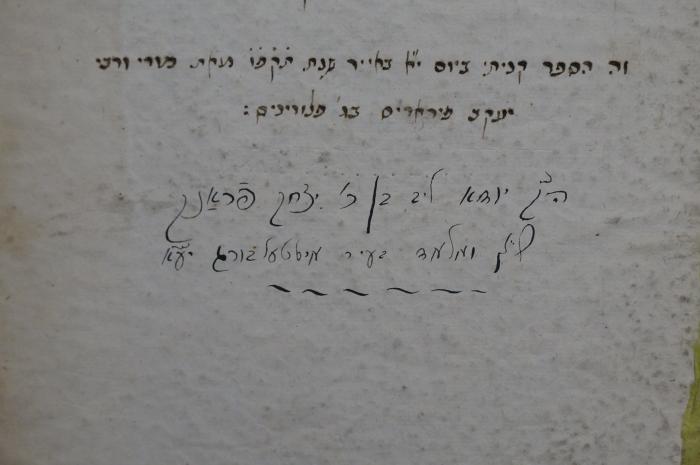 זה הספר קניתי ביום י"א באייר שנת תקפ"ו מאת מורי ורבי
יעקב פירארים בג' פלורינים:
הק' יודא ליב בן ר' יצחק פראנק
ש"ץ ומלמד בעיר מיטטעלבורג יע"א